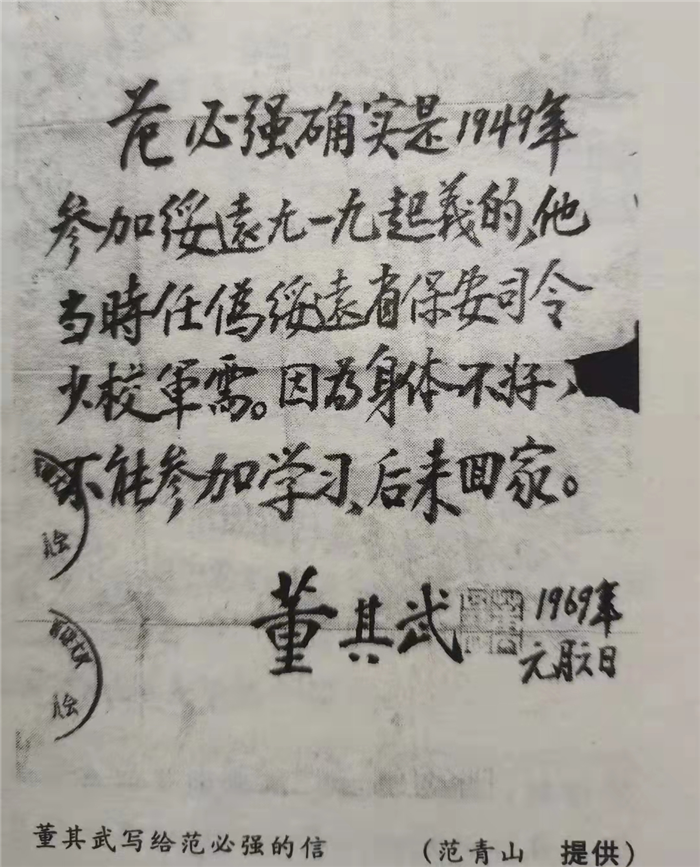 范必强确实是1949年
参加绥遠九一九起義的、他
当時任偽绥遠省保安司令
少校軍需。因为身体不好、
不能参加学习、后来回家。
董其武
1969年
元月六日
董其武写给范必强的信
(范青山 提供)